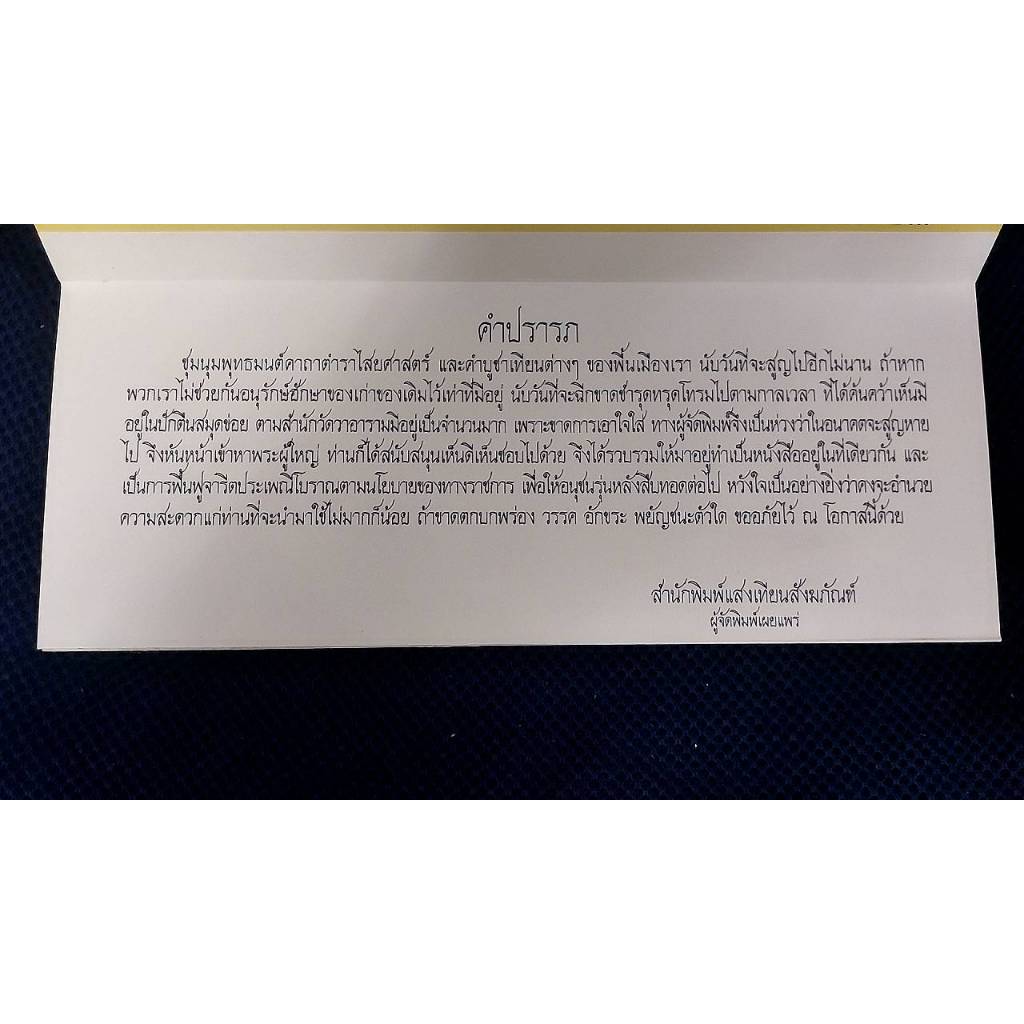 คำปรารภ
ชุมนุมพุทธมนต์คาถาตำราไสยศาสตร์ และคำบูชาเทียนต่างๆ ของพื้นเมืองเรา นับวันที่จะสูญไปอีกไม่นาน ถ้าหาก
พวกเราไม่ช่วยกันอนุรักษ์ฮักษาของเก่าของเดิมไว้เท่าที่มีอยู่ นับวันที่จะฉีกขาดชำรุดทรุดโทรมไปตามกาลเวลา ที่ได้ค้นคว้าเห็นมี
อยู่ในปั๊กตืนสมุดข่อย ตามสำนักวัดวาอารามมีอยู่เป็นจำนวนมาก เพราะขาดการเอาใจใส่ ทางผู้จัดพิมพ์จึงเป็นห่วงว่าในอนาคตจะสูญหาย
ไป จึงหันหน้าเข้าหาพระผู้ใหญ่ ท่านก็ได้สนับสนุนเห็นดีเห็นชอบไปด้วย จึงได้รวบรวมให้มาอยู่ทำเป็นหนังสืออยู่ในที่เดียวกัน และ
เป็นการฟื้นฟูจารีตประเพณีโบราณตามนโยบายของทางราชการ เพื่อให้อนุชนรุ่นหลังสืบทอดต่อไป หวังใจเป็นอย่างยิ่งว่าคงจะอำนวย
ความสะดวกแก่ท่านที่จะนำมาใช้ไม่มากก็น้อย ถ้าขาดตกบกพร่อง วรรค อักขระ พยัญชนะตัวใด ขออภัยไว้ ณ โอกาสนี้ด้วย
สำนักพิมพ์แสงเทียนสังฆภัณฑ์
ผู้จัดพิมพ์เผยแพร่